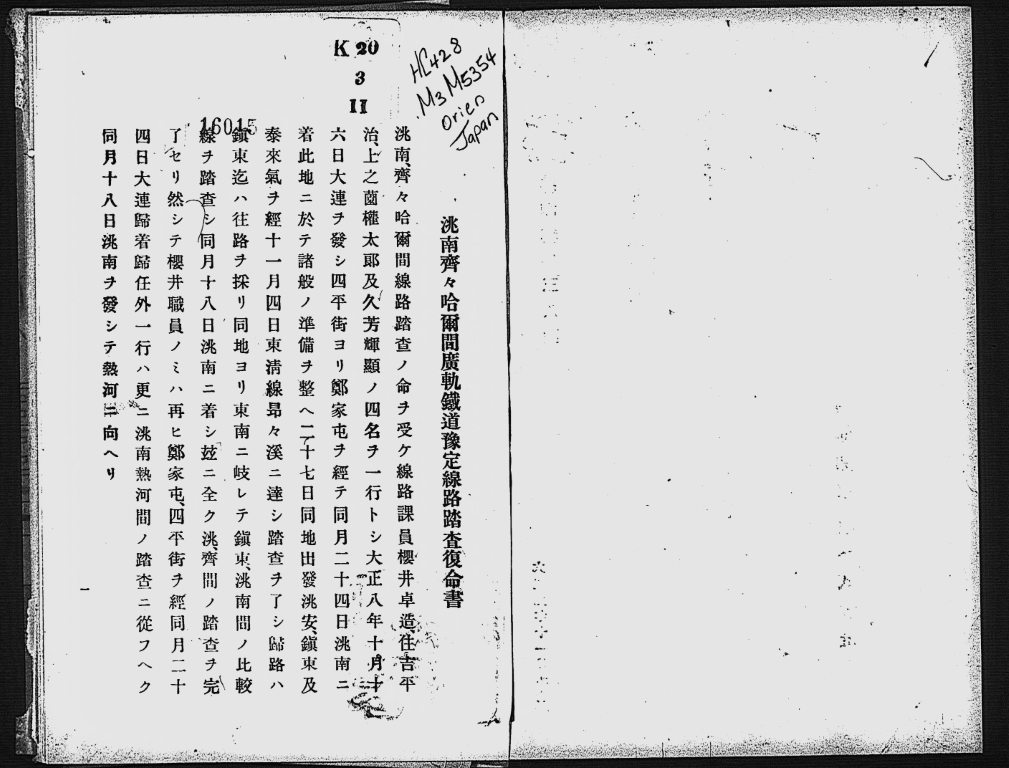 K 20
3
II
HC428
.M3M5354
Orien
Japan
16015
洮南齊々哈爾間廣軌鐵道豫定線路踏査復命書
洮南、齊々哈爾間線路踏査ノ命ヲ受ケ線路課員櫻井卓造、住吉平
治、上之薗權太郎及久芳輝顯ノ四名ヲ一行トシ大正八年十月十
六日大連ヲ發シ四平街ヨリ鄭家屯ヲ經テ同月二十四日洮南ニ
着此地ニ於テ諸般ノ準備ヲ整ヘ二十七日同地出發洮安、鎭東及
泰來氣ヲ經十一月四日東淸線昻々溪ニ達シ踏査ヲ了シ歸路ハ
鎭東迄ハ往路ヲ採リ同地ヨリ東南ニ岐レテ鎭東、洮南間ノ比較
線ヲ踏査シ同月十八日洮南ニ着シ玆ニ全ク洮、齊間ノ踏査ヲ完
了セリ然シテ櫻井職員ノミハ再ヒ鄭家屯、四平街ヲ經同月二十
四日大連歸着歸任外一行ハ更ニ洮南熱河間ノ踏査ニ從フヘク
同月十八日洮南ヲ發シテ熱河ニ向ヘリ
一